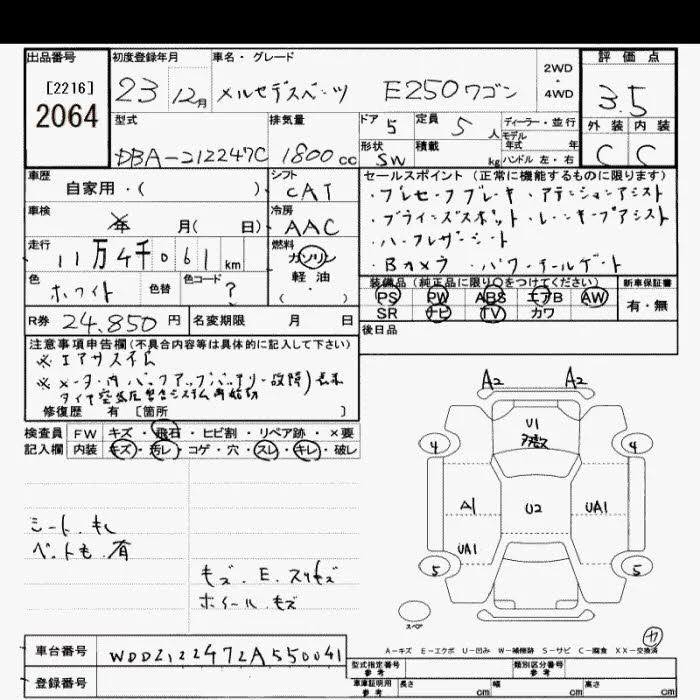 出品番号 初度登録年月 車名・グレード 評価点
[2216]
2064
23 12月 メルセデスベンツ E250ワゴン
2WD
・
4WD
3.5
外装 内装
C C
型式 排気量 ドア 定員 ディーラー・並行
DBA-212247C 1800cc 5 5人
モデル年式 年
形状 積載 ハンドル 左・右
SW kg
車歴 シフト セールスポイント(正常に機能するものに限ります)
自家用・( ) CAT
・プレセーフブレーキ ・アテンションアシスト
車検 冷房
年 月( 日) AAC
・ブラインドスポット ・レーンキープアシスト
・ハーフレザーシート
・Bカメラ ・パワーテールゲート
走行 燃料
11万4千061km ガソリン
・
軽油
・
( )
色 色替 色コード
ホワイト ?
装備品(純正品に限り○をつけてください) 新車保証書
PS PW ABS エアB AW
SR ナビ TV カワ
有・無
R券 24,850円 名変期限 月 日
後日品
注意事項申告欄(不具合内容等は具体的に記入して下さい)
※エアサスイム
※メーター内バックアップバッテリー故障)表示
修復歴 有 [箇所 ]
検査員 FW キズ・飛石・ヒビ割・リペア跡・×要
記入欄 内装 キズ・汚レ・コゲ・穴・スレ・キレ・破レ
A2 A2
U1
4 4
A1 U2 UA1
UA1
5 5
スペア
シート.キレ
ペットも.有
モズ.E.スリキズ
ホイール.キズ
A-キズ E-エクボ U-凹み W-補修跡 S-サビ C-腐食 XX-交換済
車台番号 WDD2122472A550041
登録番号
型式指定番号 参考 類別区分番号 参考
車庫証明用 参考 長さ cm 幅 cm 高さ cm